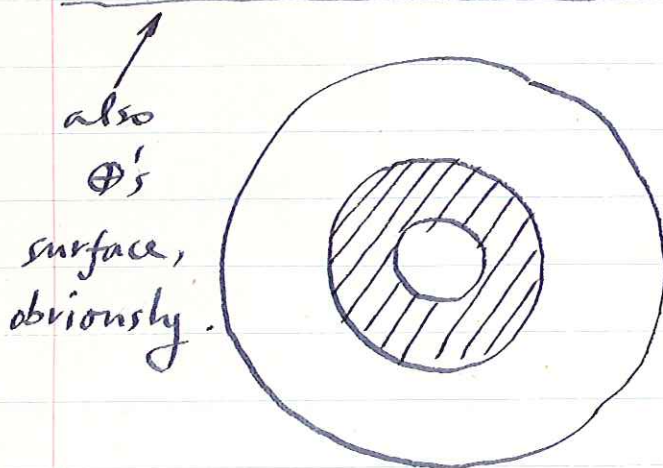 also
⊕'s
surface,
obviously.